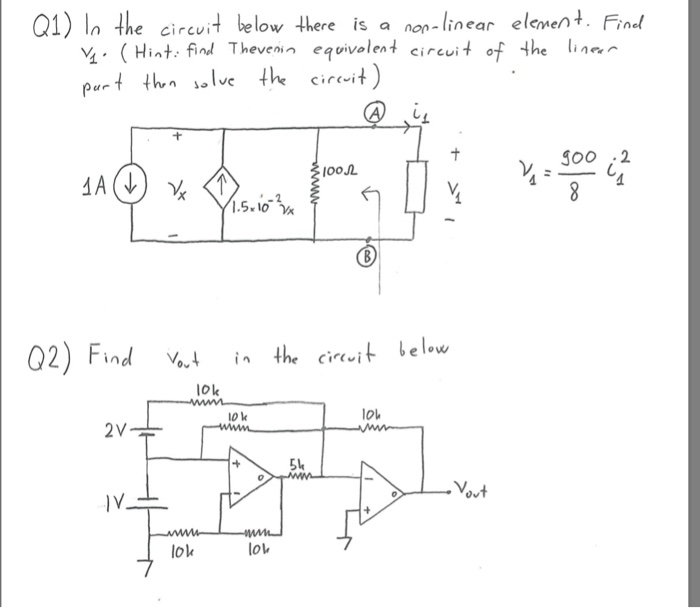 Q1) In the circuit below there is a non-linear element. Find
V₁. (Hint: find Thevenin equivalent circuit of the linear
part then solve the circuit)
A i₁
+ + 
1A Vx 1.5×10⁻² Vx 100Ω V₁ V₁ = 900/8 i₁²
- -
B
Q2) Find Vout in the circuit below
10k
10k 10k
2V
+ 5k -
1V - o o Vout
+
10k 10k